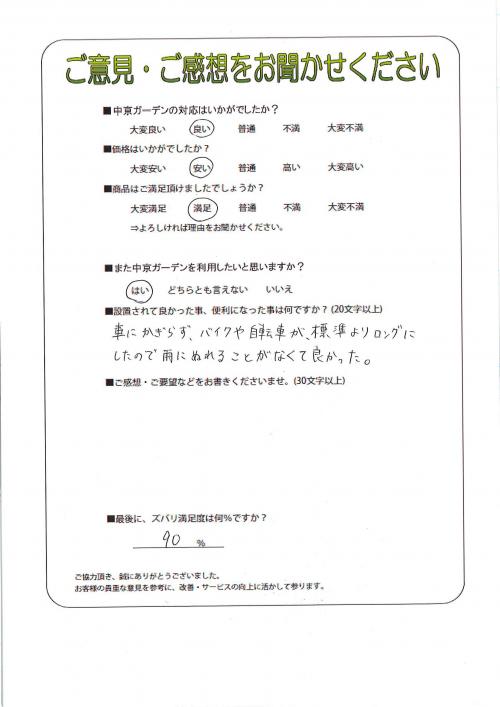 ご意見・ご感想をお聞かせください
■中京ガーデンの対応はいかがでしたか？
大変良い 良い 普通 不満 大変不満
■価格はいかがでしたか？
大変安い 安い 普通 高い 大変高い
■商品はご満足頂けましたでしょうか？
大変満足 満足 普通 不満 大変不満
⇒よろしければ理由をお聞かせください。
■また中京ガーデンを利用したいと思いますか？
はい どちらとも言えない いいえ
■設置されて良かった事、便利になった事は何ですか？(20文字以上)
車にかぎらず、バイクや自転車が、標準よりロングに
したので雨にぬれることがなくて良かった。
■ご感想・ご要望などをお書きくださいませ。(30文字以上)
■最後に、ズバリ満足度は何％ですか？
90 %
ご協力頂き、誠にありがとうございました。
お客様の貴重な意見を参考に、改善・サービスの向上に活かして参ります。